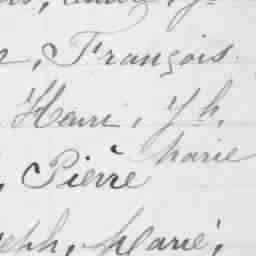 François
Henri, Jh,
marie
, Pierre
seph, Marie,